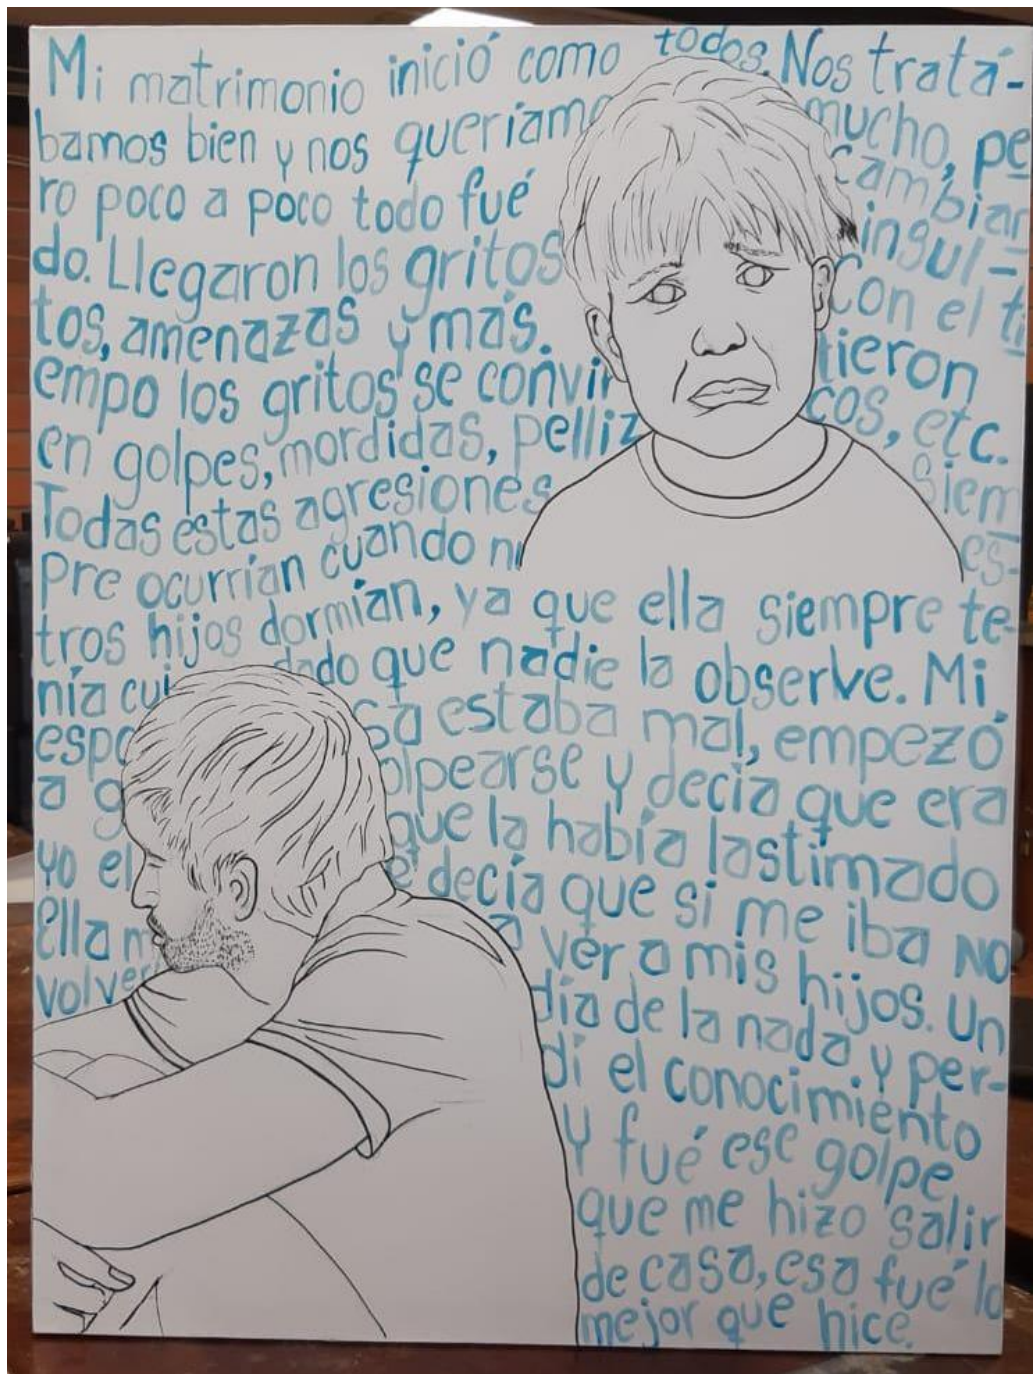 Mi matrimonio inició como todos. Nos tratá-
bamos bien y nos queríamo mucho, pe
ro poco a poco todo fué cambian
do. Llegaron los gritos ingul-
tos, amenazas y mas. Con el ti
empo los gritos se convir tieron
en golpes, mordidas, pelliz cos, etc.
Todas estas agresiones Siem
pre ocurrían cuando nu es-
tros hijos dormían, ya que ella siempre te-
nía cui dado que nadie la observe. Mi
espo sa estaba mal, empezó
a g olpearse y decía que era
yo el que la había lastimado
Ella m e decía que si me iba NO
volver a ver a mis hijos. Un
día de la nada y per-
dí el conocimiento
Y fué ese golpe
que me hizo salir
de casa, esa fué lo
mejor que hice.